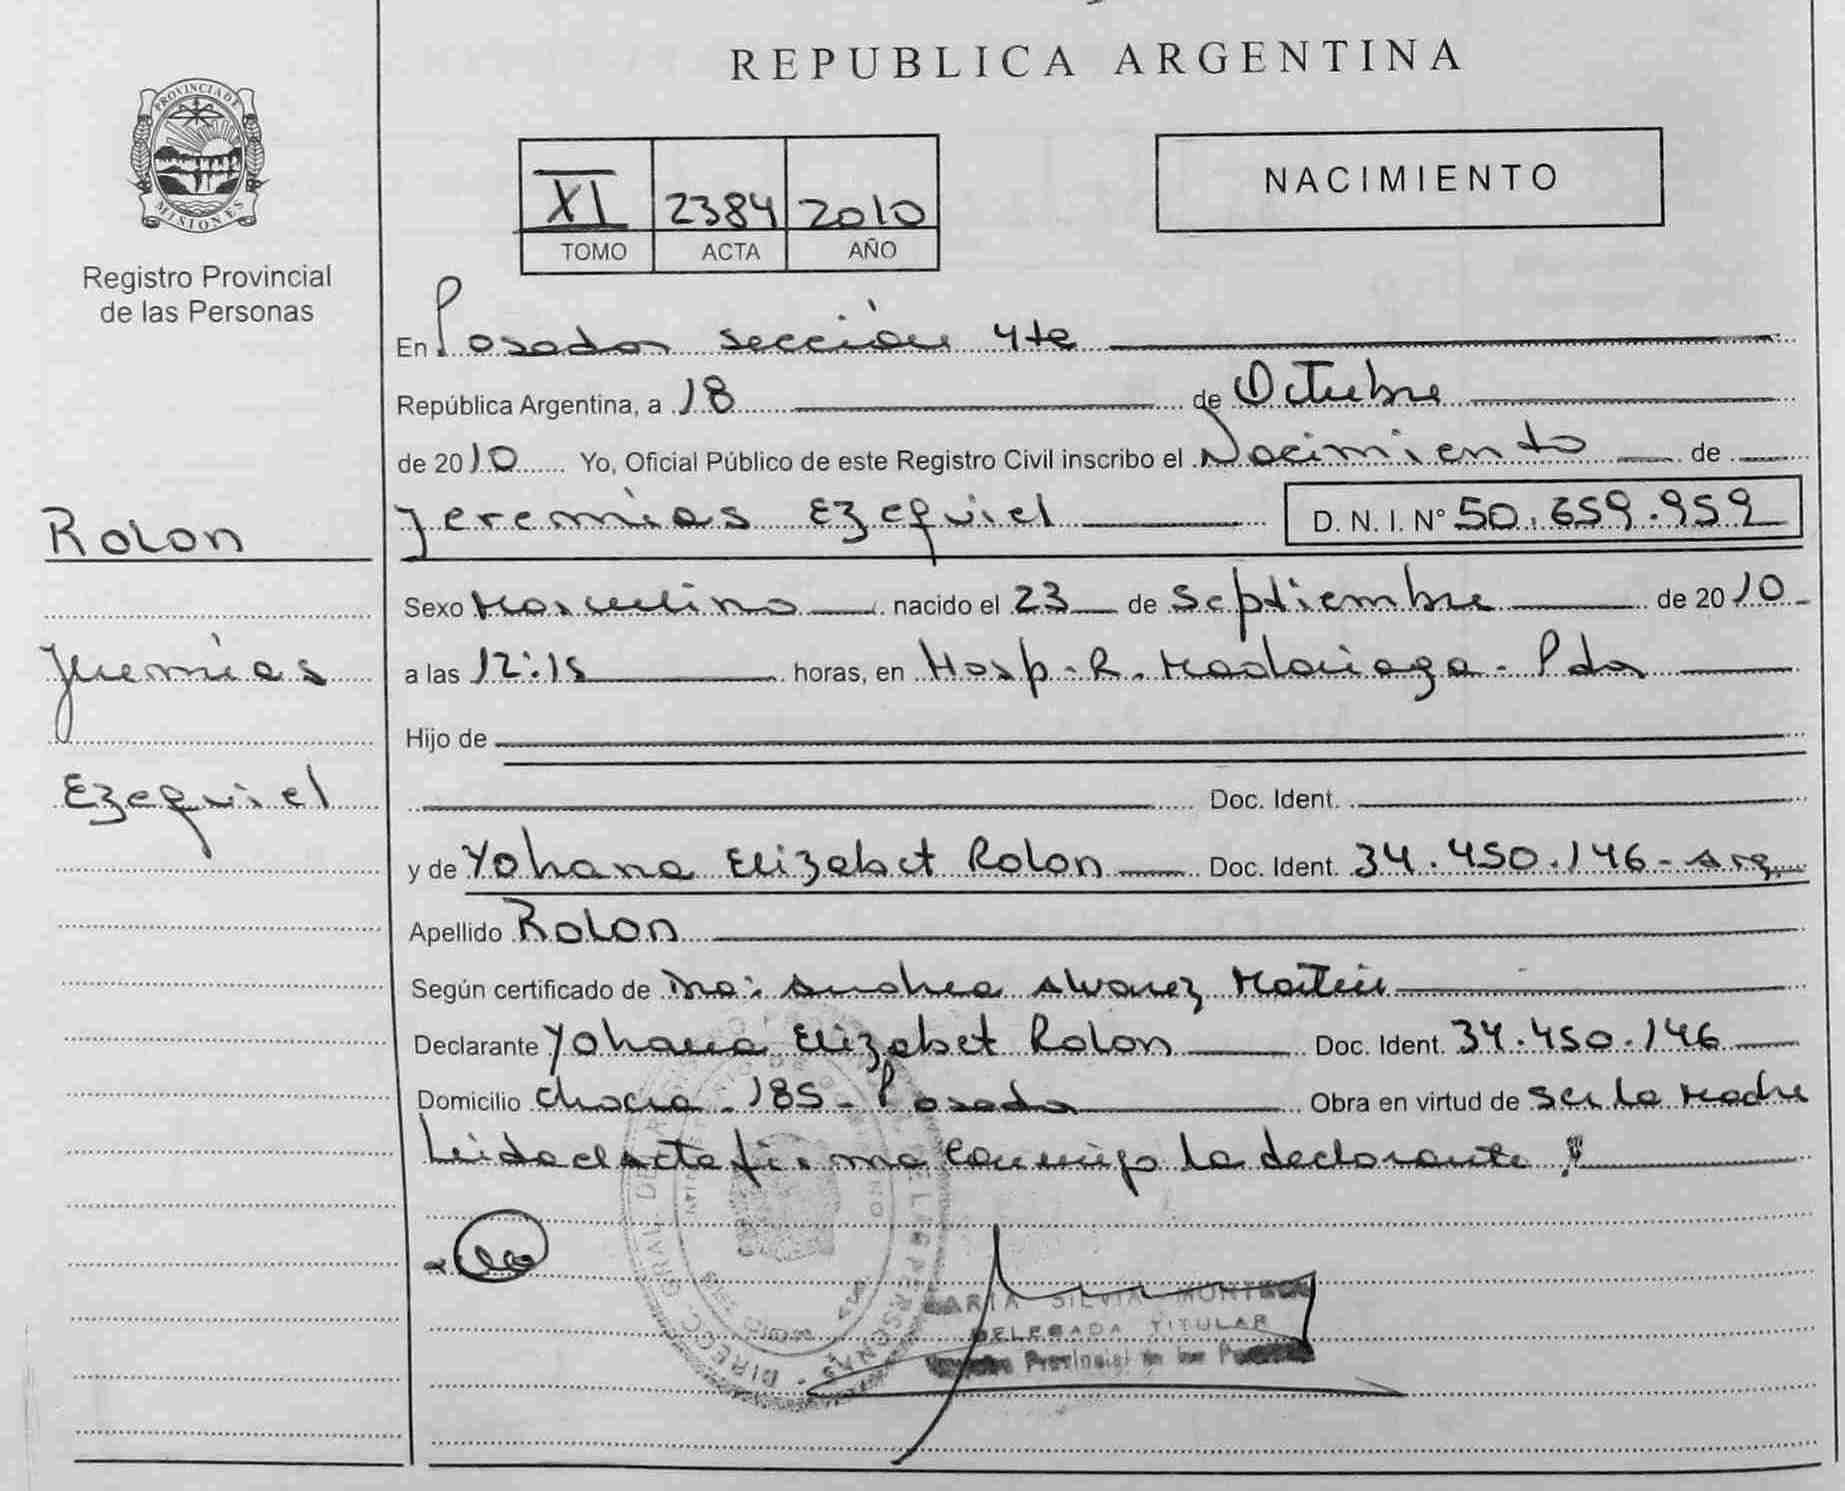 REPUBLICA ARGENTINA
PROVINCIA DE
MISIONES
Registro Provincial
de las Personas
XI 2384 2010
TOMO ACTA AÑO
NACIMIENTO
En Posadas sección 4ta
República Argentina, a 18 de Octubre
de 2010 Yo, Oficial Público de este Registro Civil inscribo el Nacimiento de
Rolon
Jeremías Ezequiel D. N. I. Nº 50.659.959
Sexo Masculino nacido el 23 de Septiembre de 2010
Jeremías
a las 12:15 horas, en Hosp. R. Madariaga - Pdas
Hijo de
Ezequiel
Doc. Ident.
y de Yohana Elizabet Rolon Doc. Ident. 34.450.146 - Arg.
Apellido Rolon
Según certificado de Dra: Andrea Alvarez
Declarante Yohana Elizabet Rolon Doc. Ident. 34.450.146
Domicilio chacra - 185 - Posadas Obra en virtud de ser la madre
Leida el acta firma conmigo la declarante
DIRECC. GRAL. DE LAS PERSONAS
MARTA SILVIA
DELEGADA TITULAR
Provincial de las